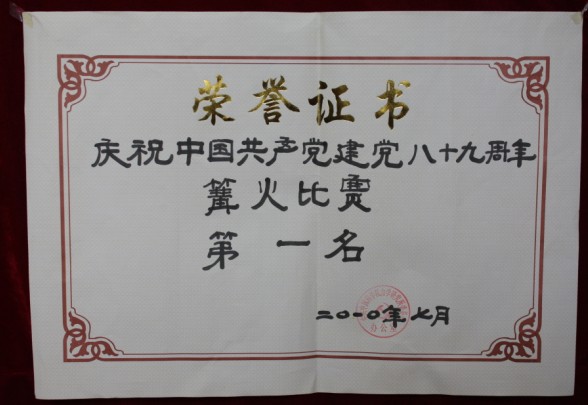 荣誉证书
庆祝中国共产党建党八十九周年
篝火比赛
第一名
二〇一〇年七月
办公室